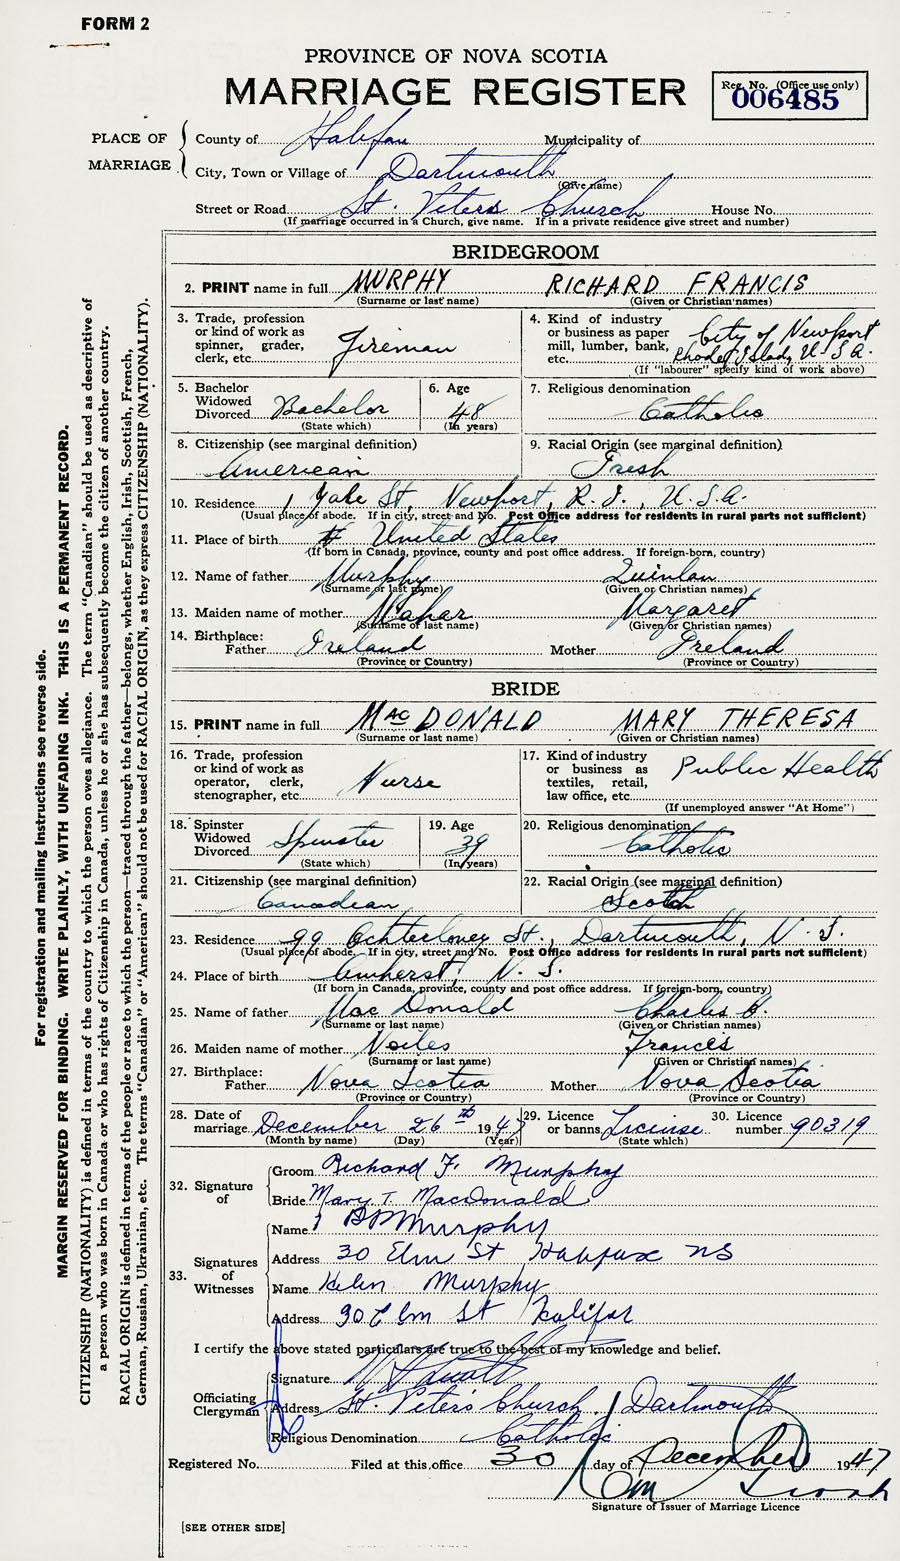 FORM 2
PROVINCE OF NOVA SCOTIA
MARRIAGE REGISTER
Reg. No. (Office use only)
006485
PLACE OF MARRIAGE
County of Halifax Municipality of
City, Town or Village of Dartmouth
(Give name)
Street or Road St. Peters Church House No.
(If marriage occurred in a Church, give name. If in a private residence give street and number)
BRIDEGROOM
2. PRINT name in full MURPHY RICHARD FRANCIS
(Surname or last name) (Given or Christian names)
3. Trade, profession or kind of work as spinner, grader, clerk, etc. Fireman
4. Kind of industry or business as paper mill, lumber, bank, etc. City of Newport Rhode Island, U.S.A.
(If "labourer" specify kind of work above)
5. Bachelor Widowed Divorced Bachelor
(State which)
6. Age 48
(In years)
7. Religious denomination Catholic
8. Citizenship (see marginal definition) American
9. Racial Origin (see marginal definition) Iresh
10. Residence 1 Yale St, Newport, R.I., U.S.A.
(Usual place of abode. If in city, street and No. Post Office address for residents in rural parts not sufficient)
11. Place of birth United States
(If born in Canada, province, county and post office address. If foreign-born, country)
12. Name of father Murphy Quinlan
(Surname or last name) (Given or Christian names)
13. Maiden name of mother Mahar Margaret
(Surname of last name) (Given or Christian names)
14. Birthplace:
Father Ireland Mother Ireland
(Province or Country) (Province or Country)
BRIDE
15. PRINT name in full MacDONALD MARY THERESA
(Surname or last name) (Given or Christian names)
16. Trade, profession or kind of work as operator, clerk, stenographer, etc. Nurse
17. Kind of industry or business as textiles, retail, law office, etc. Public Health
(If unemployed answer "At Home")
18. Spinster Widowed Divorced Spinster
(State which)
19. Age 39
(In years)
20. Religious denomination Catholic
21. Citizenship (see marginal definition) Canadian
22. Racial Origin (see marginal definition) Scotch
23. Residence 99 Ochterloney St., Dartmouth, N.S.
(Usual place of abode. If in city, street and No. Post Office address for residents in rural parts not sufficient)
24. Place of birth Amherst, N.S.
(If born in Canada, province, county and post office address. If foreign-born, country)
25. Name of father MacDonald Charles H.
(Surname or last name) (Given or Christian names)
26. Maiden name of mother Noiles Frances
(Surname or last name) (Given or Christian names)
27. Birthplace:
Father Nova Scotia Mother Nova Scotia
(Province or Country) (Province or Country)
28. Date of marriage December 26th 1947
(Month by name) (Day) (Year)
29. Licence or banns License
(State which)
30. Licence number 90319
32. Signature of
Groom Richard F. Murphy
Bride Mary T. MacDonald
33. Signatures of Witnesses
Name Murphy
Address 30 Elm St Halifax NS
Name Helen Murphy
Address 30 Elm St Halifax
I certify the above stated particulars are true to the best of my knowledge and belief.
Officiating Clergyman
Signature
Address St. Peter's Church, Dartmouth
Religious Denomination Catholic
Registered No. Filed at this office 30 day of December 1947
Signature of Issuer of Marriage Licence
[SEE OTHER SIDE]
For registration and mailing instructions see reverse side.
MARGIN RESERVED FOR BINDING. WRITE PLAINLY, WITH UNFADING INK. THIS IS A PERMANENT RECORD.
CITIZENSHIP (NATIONALITY) is defined in terms of the country to which the person owes allegiance. The term "Canadian" should be used as descriptive of
a person who was born in Canada or who has rights of Citizenship in Canada, unless he or she has subsequently become the citizen of another country.
RACIAL ORIGIN is defined in terms of the people or race to which the person—traced through the father—belongs, whether English, Irish, Scottish, French,
German, Russian, Ukrainian, etc. The terms "Canadian" or "American" should not be used for RACIAL ORIGIN, as they express CITIZENSHIP (NATIONALITY).